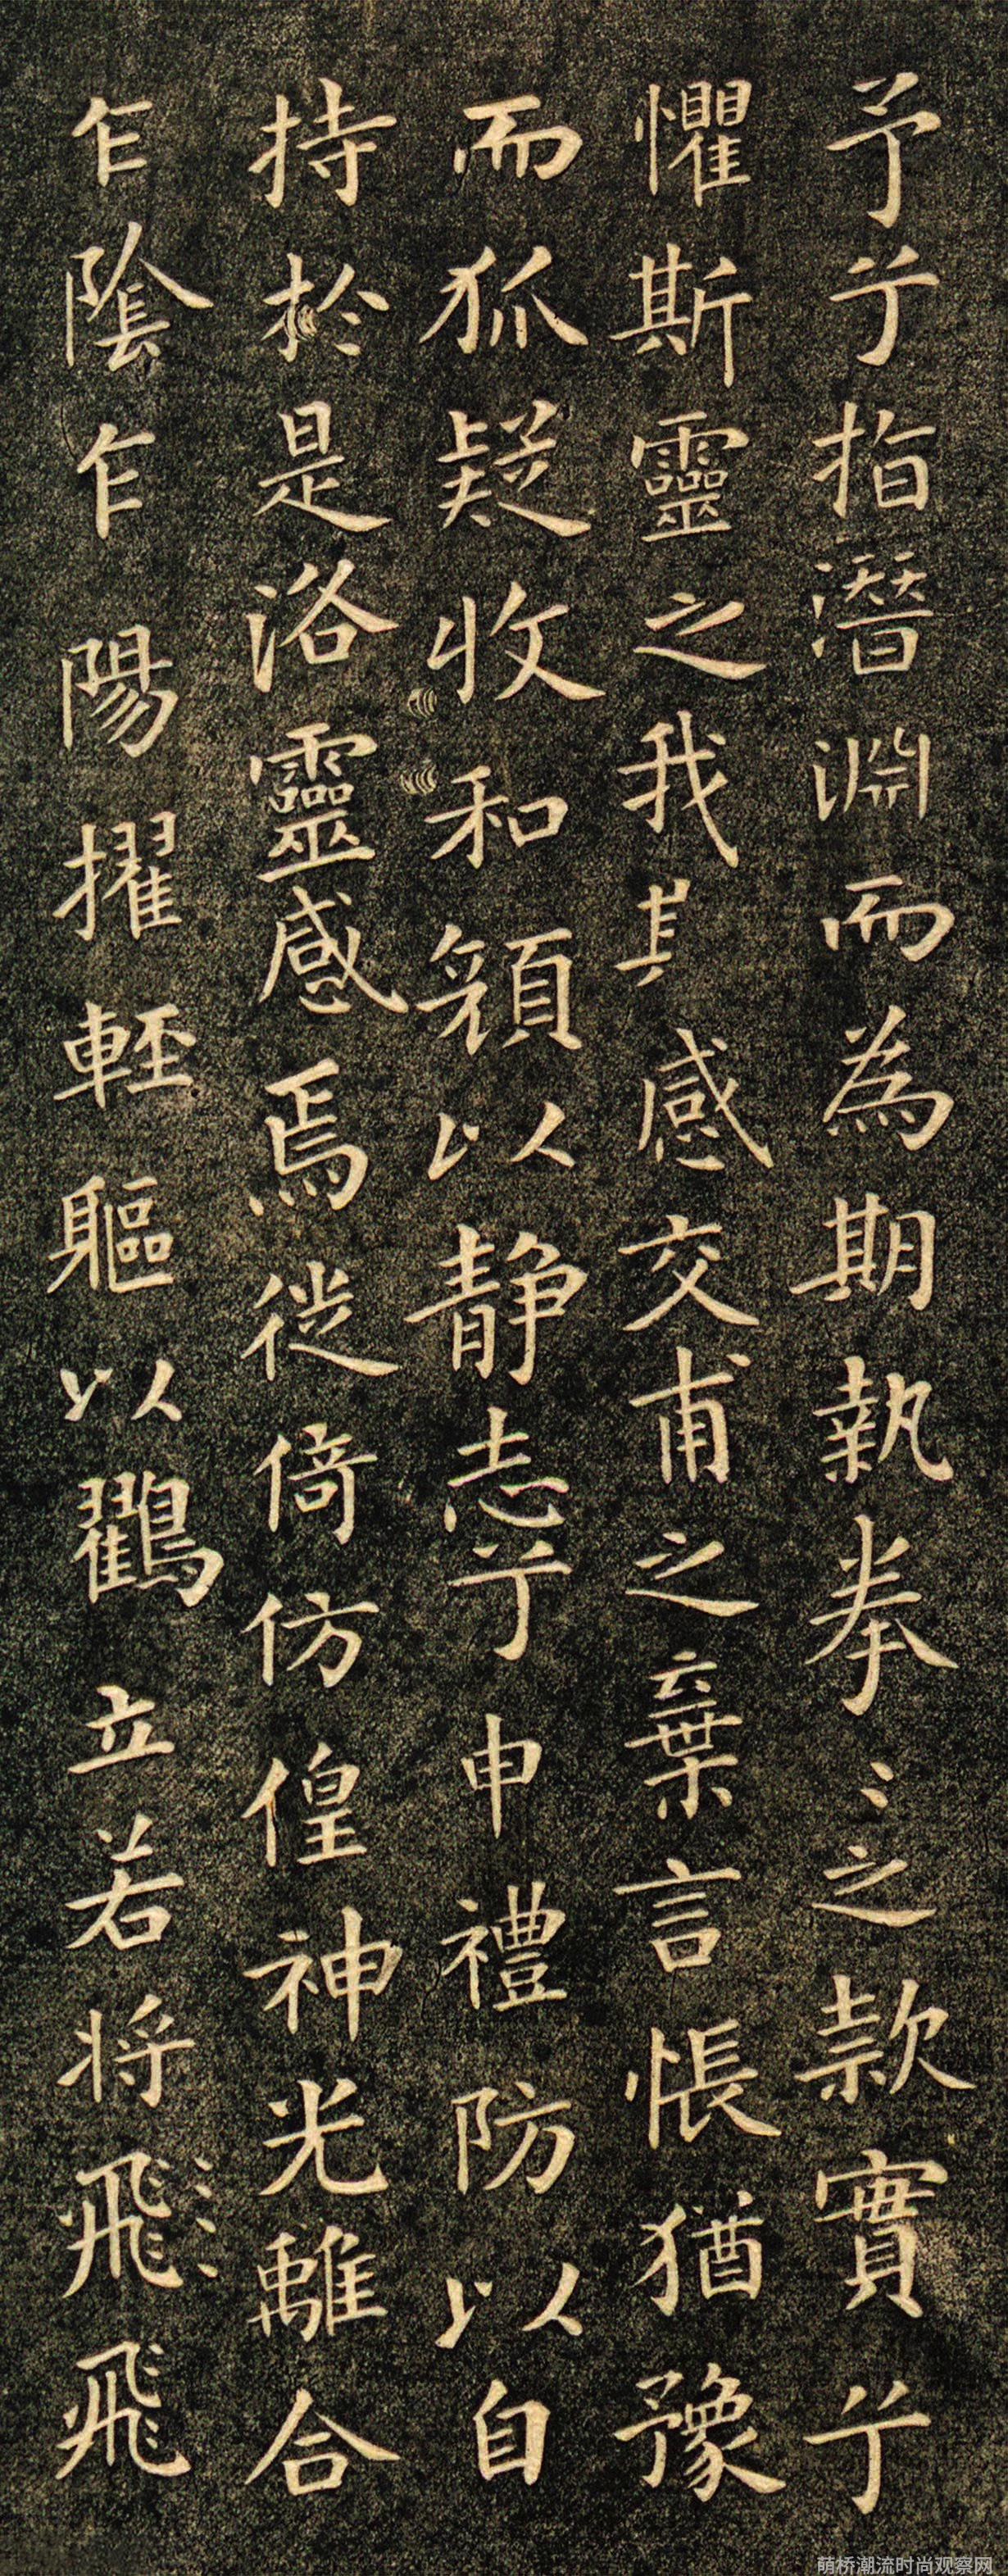 予兮指潛淵而為期執拳〻之款實兮
懼斯靈之我其感交甫之棄言悵猶豫
而狐疑收和顏以静志兮申禮防以自
持於是洛靈感焉徙倚仿偟神光離合
乍陰乍陽擢輕軀以鶴立若将飛飛
萌桥潮流时尚观察网